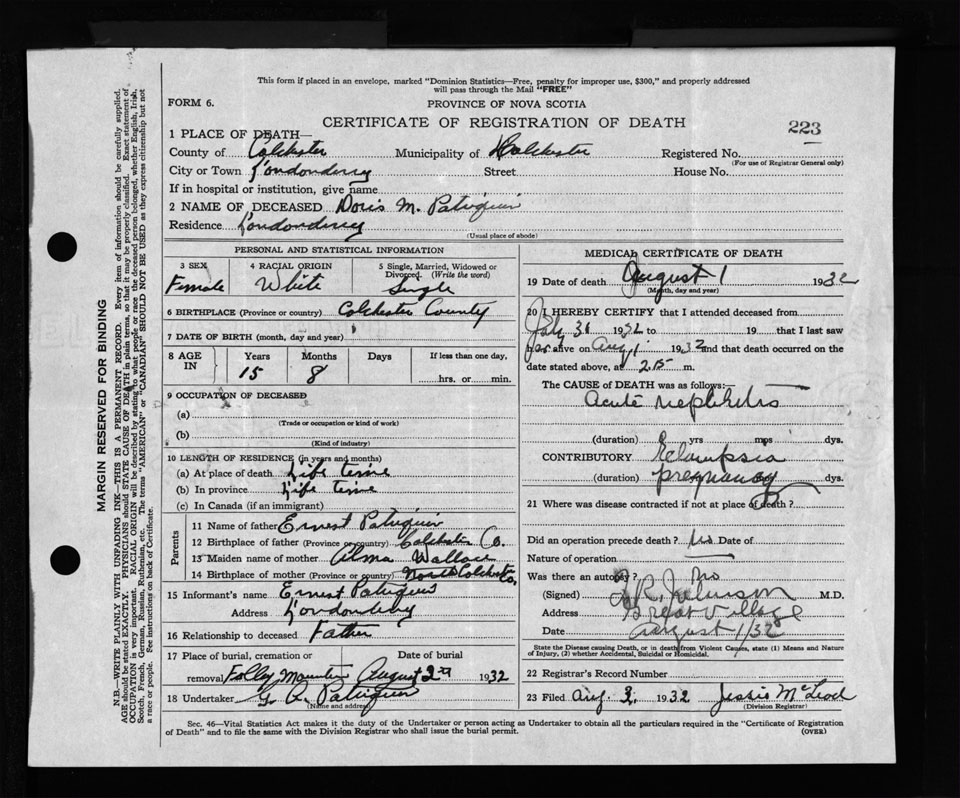 This form if placed in an envelope, marked "Dominion Statistics—Free, penalty for improper use, $300," and properly addressed
will pass through the Mail "FREE"
FORM 6.
PROVINCE OF NOVA SCOTIA
CERTIFICATE OF REGISTRATION OF DEATH
223
1 PLACE OF DEATH—
County of Colchester Municipality of Colchester Registered No.
(For use of Registrar General only)
City or Town Londonderry Street House No.
If in hospital or institution, give name
2 NAME OF DECEASED Doris M. Patriquin
Residence Londonderry
(Usual place of abode)
PERSONAL AND STATISTICAL INFORMATION
3 SEX
Female
4 RACIAL ORIGIN
White
5 Single, Married, Widowed or
Divorced. (Write the word)
Single
6 BIRTHPLACE (Province or country) Colchester County
7 DATE OF BIRTH (month, day and year)
8 AGE IN
Years Months Days If less than one day,
15 8 hrs. or min.
9 OCCUPATION OF DECEASED
(a)
(Trade or occupation or kind of work)
(b)
(Kind of industry)
10 LENGTH OF RESIDENCE (in years and months)
(a) At place of death Life time
(b) In province Life time
(c) In Canada (if an immigrant)
Parents
11 Name of father Ernest Patriquin
12 Birthplace of father (Province or country) Colchester Co.
13 Maiden name of mother Alma Wallace
14 Birthplace of mother (Province or country) North Colchester Co.
15 Informant's name Ernest Patriquin
Address Londonderry
16 Relationship to deceased Father
17 Place of burial, cremation or Date of burial
removal Folly Mountain August 2nd 1932
18 Undertaker G. Patriquin
(Name and address)
MEDICAL CERTIFICATE OF DEATH
19 Date of death August 1 1932
(Month, day and year)
20 I HEREBY CERTIFY that I attended deceased from
July 31 1932 to 19 that I last saw
her alive on Aug 1 1932 and that death occurred on the
date stated above, at 2.15 m.
The CAUSE of DEATH was as follows:
Acute nephritis
(duration) yrs mos dys.
CONTRIBUTORY Eclampsia
(duration) pregnancy dys.
21 Where was disease contracted if not at place of death?
Did an operation precede death? no Date of
Nature of operation
Was there an autopsy? no
(Signed) Johnson M.D.
Address Great Village
Date August 1/32
State the Disease causing Death, or in death from Violent Causes, state (1) Means and Nature
of Injury, (2) whether Accidental, Suicidal or Homicidal.
22 Registrar's Record Number
23 Filed Aug. 1932 Jessie McLeod
(Division Registrar)
Sec. 46—Vital Statistics Act makes it the duty of the Undertaker or person acting as Undertaker to obtain all the particulars required in the "Certificate of Registration
of Death" and to file the same with the Division Registrar who shall issue the burial permit.
(OVER)
MARGIN RESERVED FOR BINDING
N.B.—WRITE PLAINLY WITH UNFADING INK—THIS IS A PERMANENT RECORD. Every item of information should be carefully supplied.
AGE should be stated EXACTLY. PHYSICIANS should STATE CAUSE OF DEATH in plain terms, so that it may be properly classified. Exact statement of
OCCUPATION is very important. RACIAL ORIGIN will be described by stating to what people or race the deceased person belonged, whether English, Irish,
Scotch, French, German, Russian, Ruthenian, etc. The terms "AMERICAN" or "CANADIAN" SHOULD NOT BE USED as they express citizenship but not
a race or people. See instructions on back of Certificate.